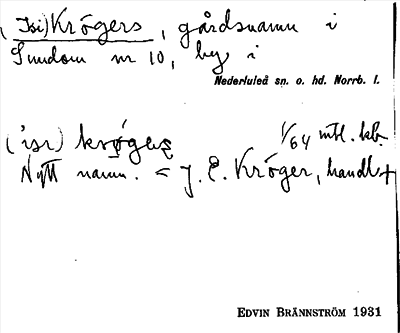 (Isi)Krögers, gårdsnamn i
Sundom nr 10, by i
Nederluleå sn. o. hd. Norrb. l.
1/64 mtl. kb.
Nytt namn. < J. E. Kröger, handl.
EDVIN BRÄNNSTRÖM 1931